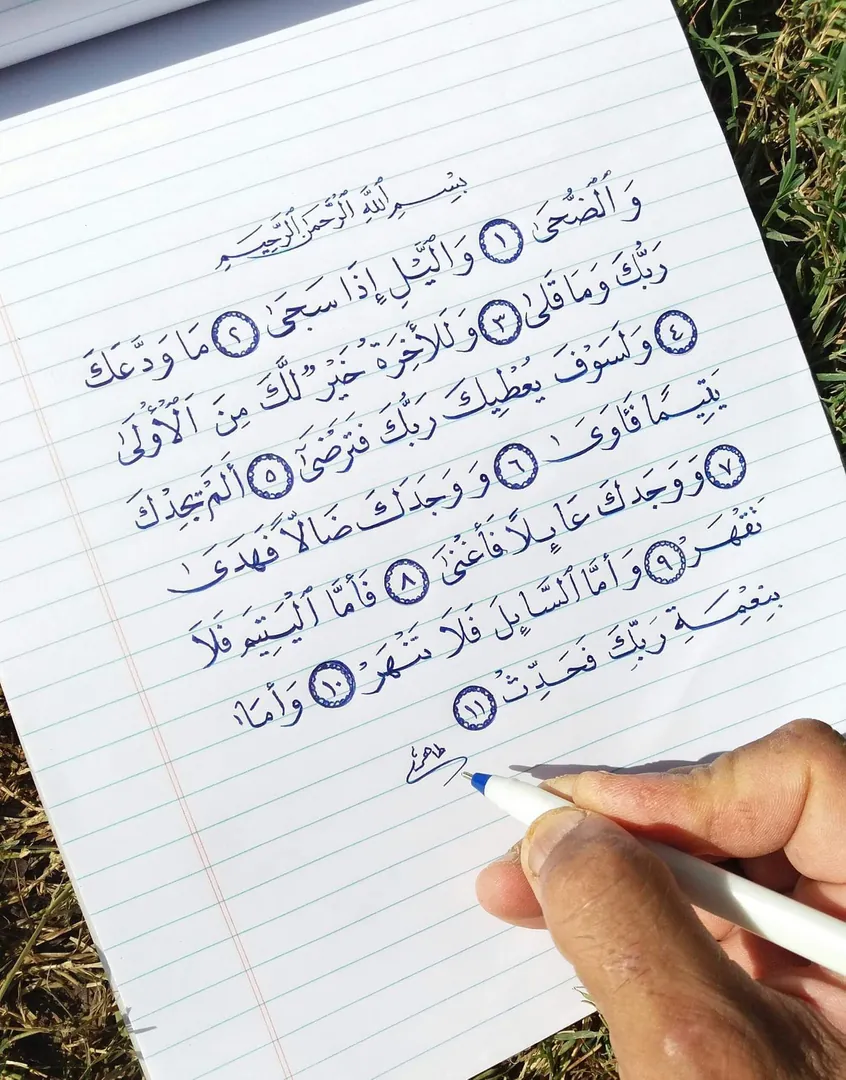 بِسْمِ ٱللَّهِ ٱلرَّحْمَنِ ٱلرَّحِيمِ
وَٱلضُّحَىٰ ١ وَٱلَّيْلِ إِذَا سَجَىٰ ٢ مَا وَدَّعَكَ
رَبُّكَ وَمَا قَلَىٰ ٣ وَلَلْأَخِرَةُ خَيْرٌ لَّكَ مِنَ ٱلْأُولَىٰ
٤ وَلَسَوْفَ يُعْطِيكَ رَبُّكَ فَتَرْضَىٰٓ ٥ أَلَمْ يَجِدْكَ
يَتِيمًا فَـَٔاوَىٰ ٦ وَوَجَدَكَ ضَالًّا فَهَدَىٰ
٧ وَوَجَدَكَ عَايِٕلًا فَأَغْنَىٰ ٨ فَأَمَّا ٱلْيَتِيمَ فَلَا
تَقْهَرْ ٩ وَأَمَّا ٱلسَّايِٕلَ فَلَا تَنْهَرْ ١٠ وَأَمَّا
بِنِعْمَةِ رَبِّكَ فَحَدِّثْ ١١